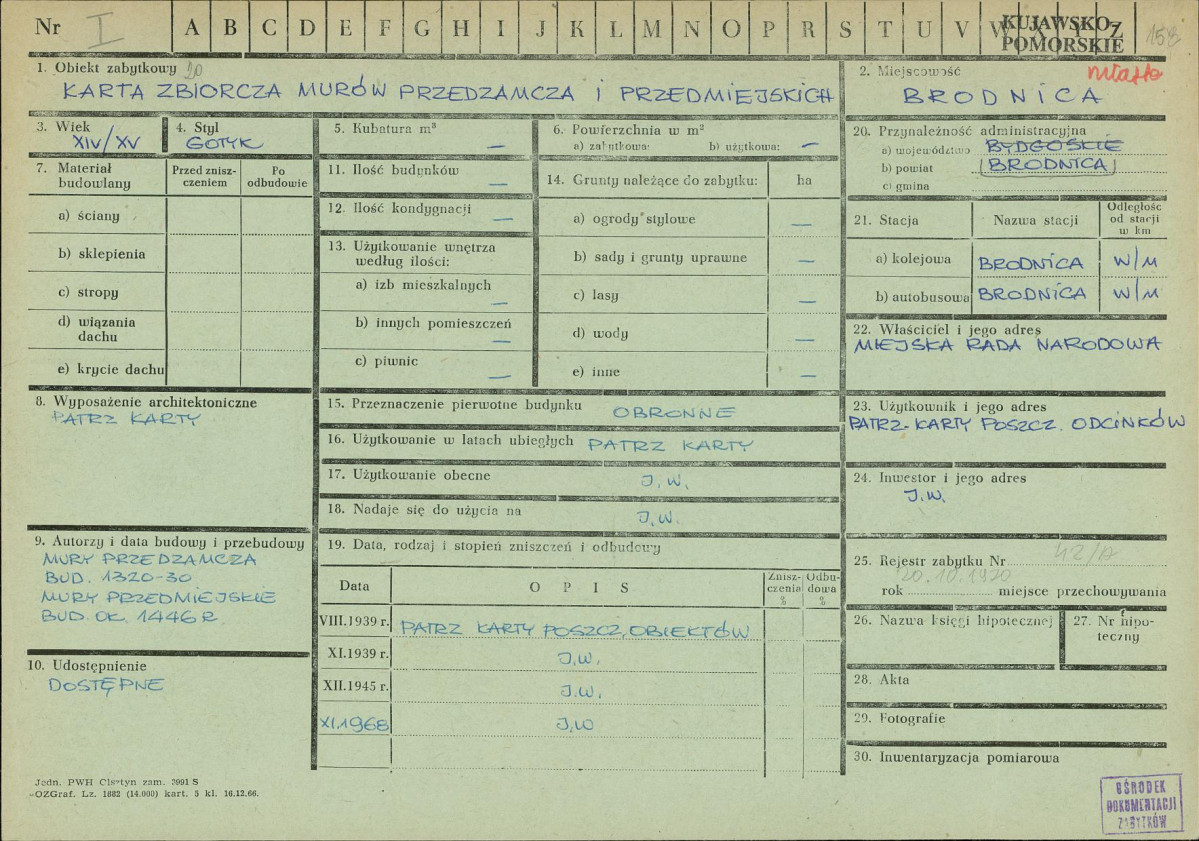 Nr I A B C D E F G H I J K L M N O P R S T U V W X Y Z KUJAWSKO-
POMORSKIE
158
1. Obiekt zabytkowy 20
KARTA ZBIORCZA MURÓW PRZEDZAMCZA i PRZEDMIEJSKICH
2. Miejscowość miasto
BRODNICA
3. Wiek
XIV/XV
4. Styl
GOTYK
5. Kubatura m³
—
6. Powierzchnia w m²
a) zabytkowa: b) użytkowa: —
7. Materiał
budowlany
Przed znisz-
czeniem
Po
odbudowie
a) ściany
b) sklepienia
c) stropy
d) wiązania
dachu
e) krycie dachu
8. Wyposażenie architektoniczne
PATRZ KARTY
9. Autorzy i data budowy i przebudowy
MURY PRZEDZAMCZA
BUD. 1320-30
MURY PRZEDMIEJSKIE
BUD. OK. 1446 R.
10. Udostępnienie
DOSTĘPNE
11. Ilość budynków
—
12. Ilość kondygnacji
—
13. Użytkowanie wnętrza
według ilości:
a) izb mieszkalnych
—
b) innych pomieszczeń
—
c) piwnic
—
14. Grunty należące do zabytku: ha
a) ogrody stylowe —
b) sady i grunty uprawne —
c) lasy —
d) wody —
e) inne —
15. Przeznaczenie pierwotne budynku OBRONNE
16. Użytkowanie w latach ubiegłych PATRZ KARTY
17. Użytkowanie obecne J.W.
18. Nadaje się do użycia na J.W.
19. Data, rodzaj i stopień zniszczeń i odbudowy
Data OPIS Znisz-
czenia
% Odbu-
dowa
%
VIII.1939 r. PATRZ KARTY POSZCZ. OBIEKTÓW
XI.1939 r. J.W.
XII.1945 r. J.W.
XI.1968 J.W
20. Przynależność administracyjna
a) województwo BYDGOSKIE
b) powiat BRODNICA
c) gmina
21. Stacja Nazwa stacji Odległość
od stacji
w km
a) kolejowa BRODNICA W/M
b) autobusowa BRODNICA W/M
22. Właściciel i jego adres
MIEJSKA RADA NARODOWA
23. Użytkownik i jego adres
PATRZ-KARTY POSZCZ. ODCINKÓW
24. Inwestor i jego adres
J.W.
25. Rejestr zabytku Nr 42/A
20.10.1920
rok miejsce przechowywania
26. Nazwa księgi hipotecznej
27. Nr hipo-
teczny
28. Akta
29. Fotografie
30. Inwentaryzacja pomiarowa
Jedn. PWH Olsztyn zam. 3991 S
OZGraf. Lz. 1882 (14.000) kart. 5 kl. 16.12.66.
OŚRODEK
DOKUMENTACJI
ZABYTKÓW